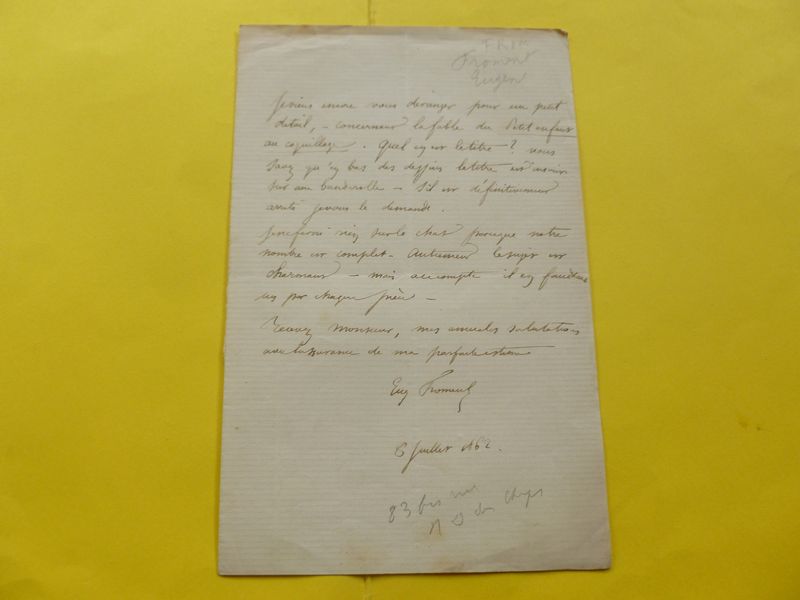 FROM
Fromont
Eugen
Je viens encore vous déranger pour un petit
détail, – concernant la fable du Petit enfant
au coquillage. Quel en est le titre – ? vous
savez qu'en bas des dessins le titre est inscrit
sur une banderolle – S'il est définitivement
arrêté je vous le demande.
Je ne ferai rien sur le chat parceque notre
nombre est complet – autrement le sujet est
charmant – mais au compte il en faudrait
un par chaque pièce –
Recevez Monsieur, mes amicales salutations
avec l'assurance de ma parfaite estime
Eug Froment
8 Juillet 1862.
83 bis rue
N D des Champs